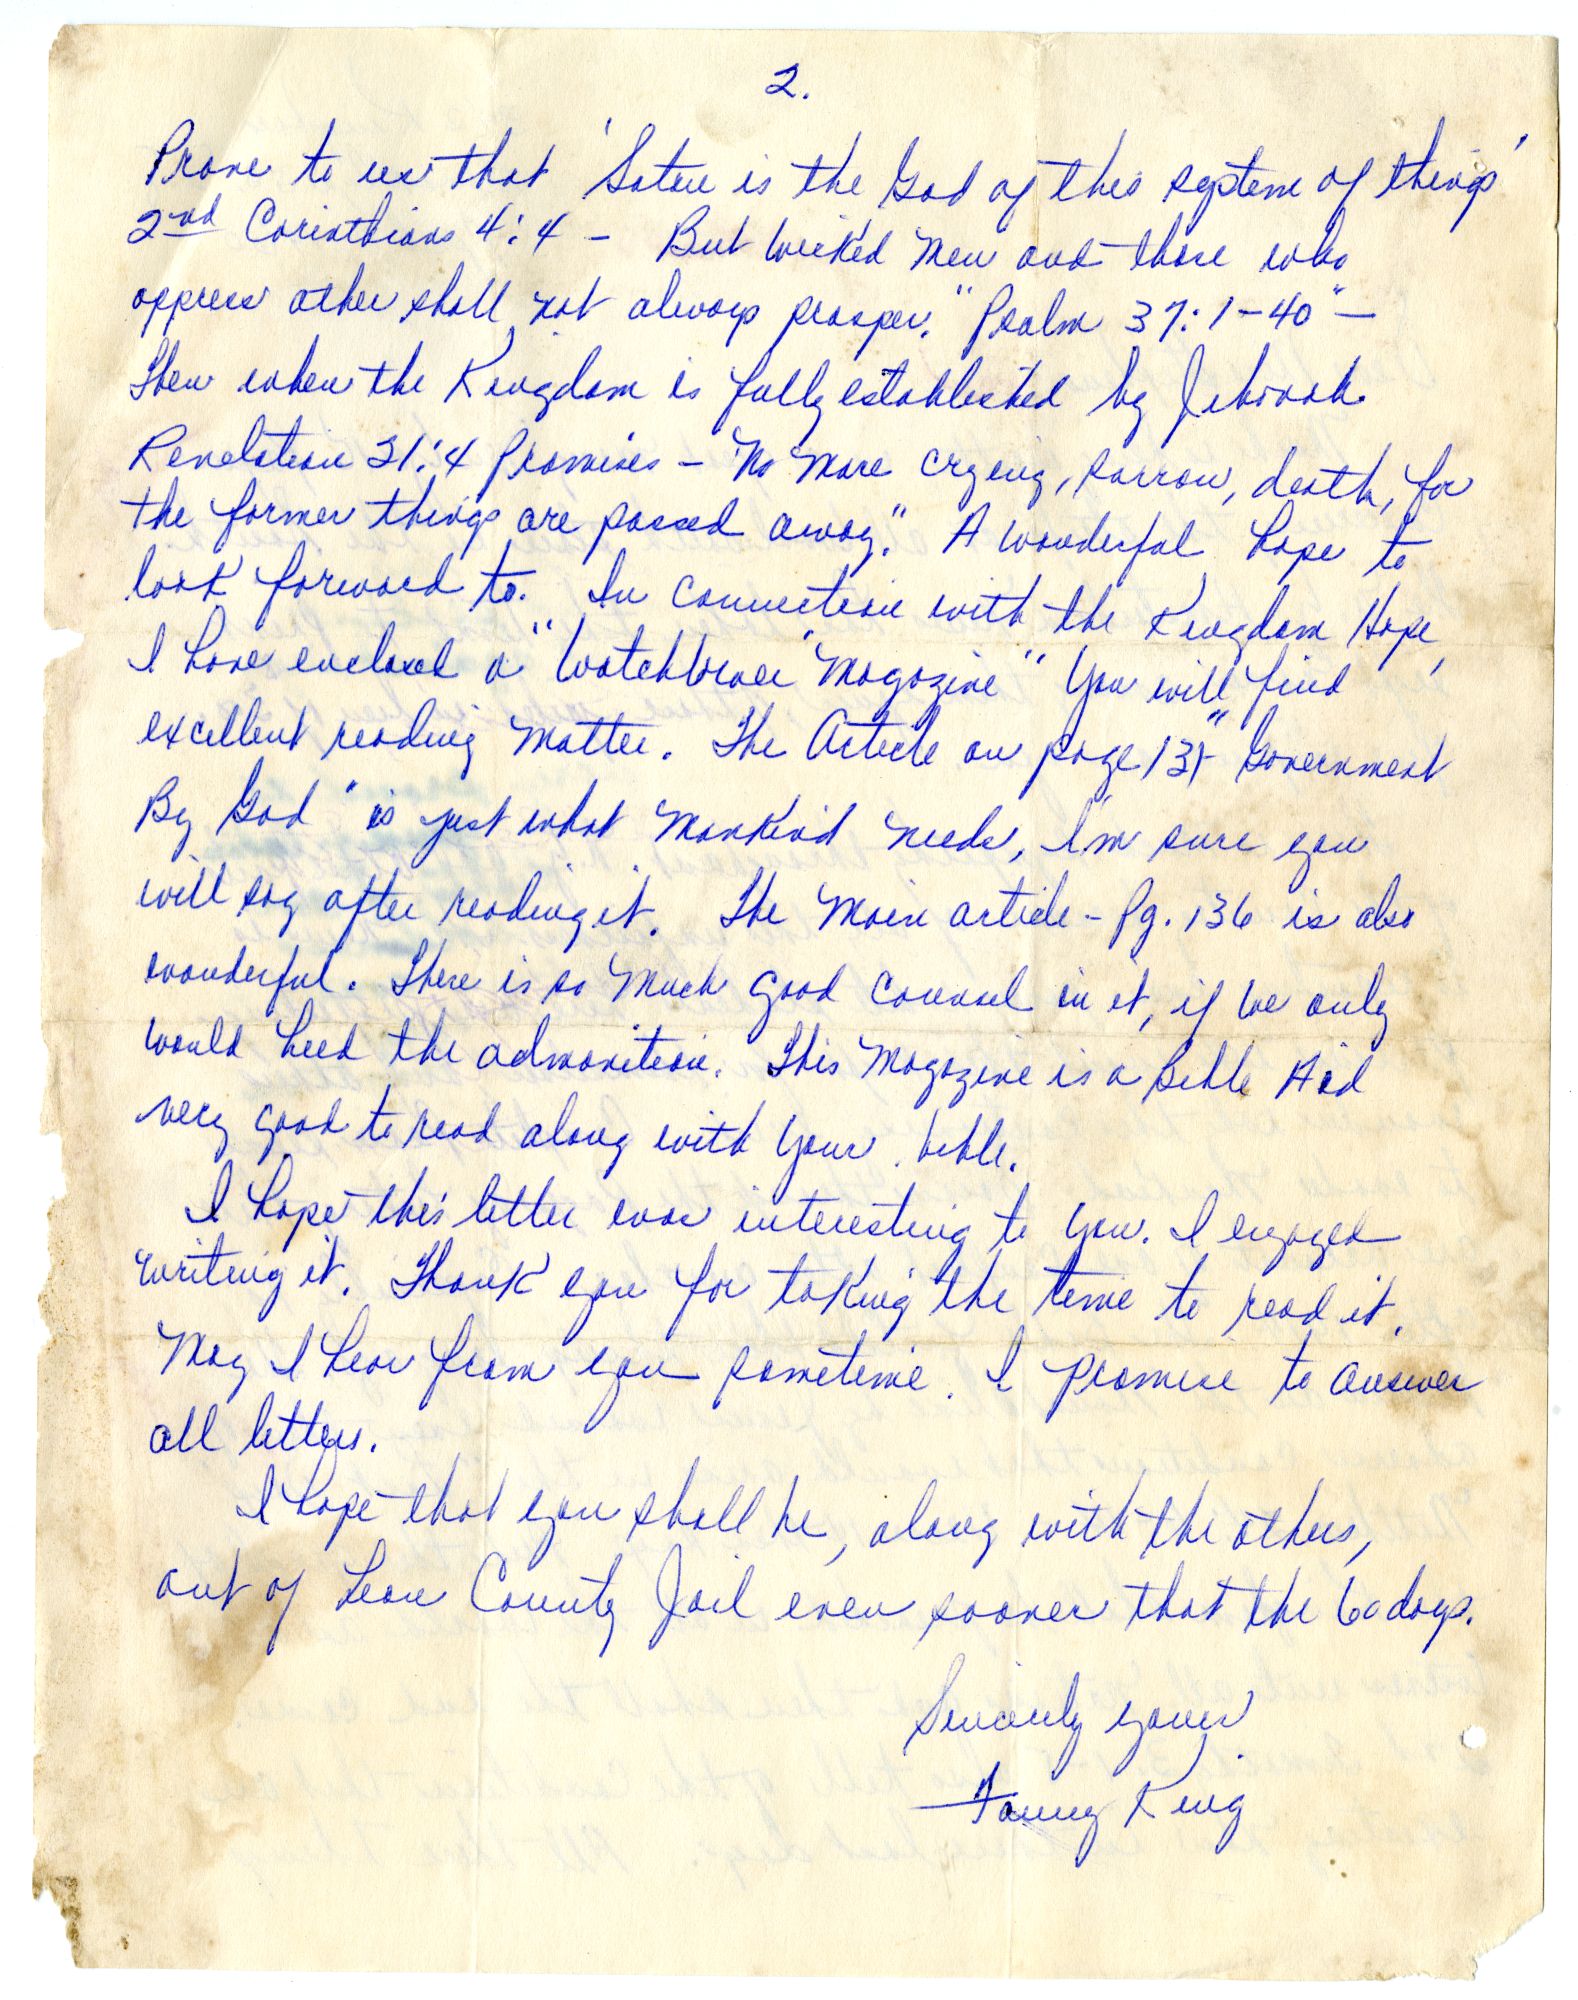 2.
Prove to us that 'Satan is the God of this system of things'
2nd Corinthians 4:4 - But wicked men and those who
oppress other shall not always prosper. "Psalm 37:1-40" -
Then when the Kingdom is fully established by Jehovah.
Revelation 21:4 Promises - "No more crying, sorrow, death, for
the former things are passed away." A wonderful hope to
look forward to. In connection with the Kingdom Hope,
I have enclosed a "Watchtower Magazine" You will find
excellent reading matter. The Article on page 131 "Government
By God" is just what mankind needs, I'm sure you
will say after reading it. The Main article - Pg. 136 is also
wonderful. There is so much good counsel in it, if we only
would heed the admonition. This Magazine is a Bible Aid
very good to read along with your bible.
I hope this letter was interesting to you. I enjoyed
writing it. Thank you for taking the time to read it.
May I hear from you sometime. I promise to answer
all letters.
I hope that you shall be, along with the others,
out of Leon County Jail even sooner that the 60 days.
Sincerely yours
King